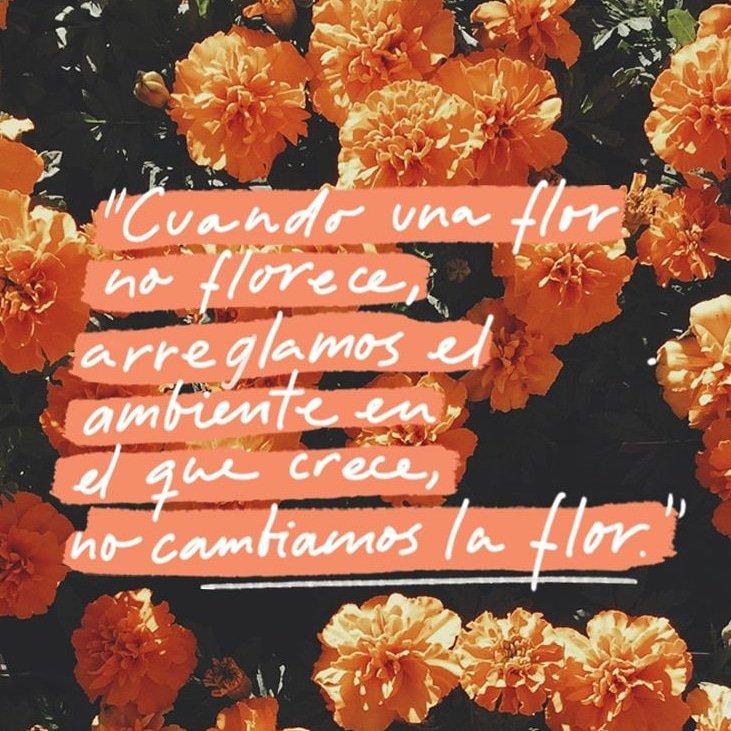 "Cuando una flor
no florece,
arreglamos el
ambiente en
el que crece,
no cambiamos la flor."